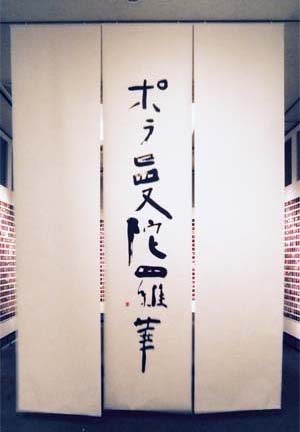 ポラ曼陀羅華